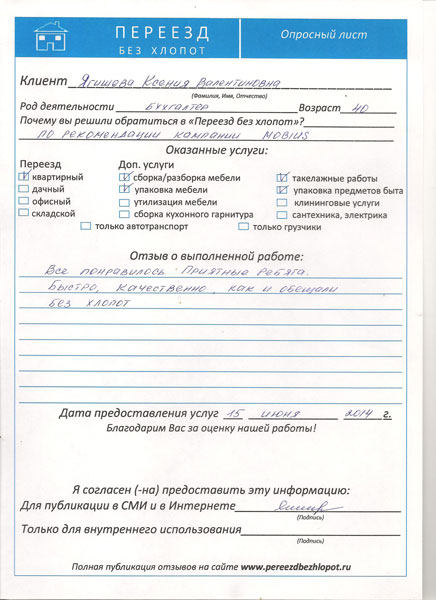 ПЕРЕЕЗД
БЕЗ ХЛОПОТ
Опросный лист
Клиент Ягишева Ксения Валентиновна
(Фамилия, Имя, Отчество)
Род деятельности Бухгалтер Возраст 40
Почему вы решили обратиться в «Переезд без хлопот»?
по рекомендации кампании MOBIUS
Оказанные услуги:
Переезд Доп. услуги
квартирный сборка/разборка мебели такелажные работы
дачный упаковка мебели упаковка предметов быта
офисный утилизация мебели клининговые услуги
складской сборка кухонного гарнитура сантехника, электрика
только автотранспорт только грузчики
Отзыв о выполненной работе:
Все понравилось. Приятные ребята.
Быстро, качественно, как и обещали
без хлопот
Дата предоставления услуг 15 июня 2014 г.
Благодарим Вас за оценку нашей работы!
Я согласен (-на) предоставить эту информацию:
Для публикации в СМИ и в Интернете
(Подпись)
Только для внутреннего использования
(Подпись)
Полная публикация отзывов на сайте www.pereezdbezhlopot.ru